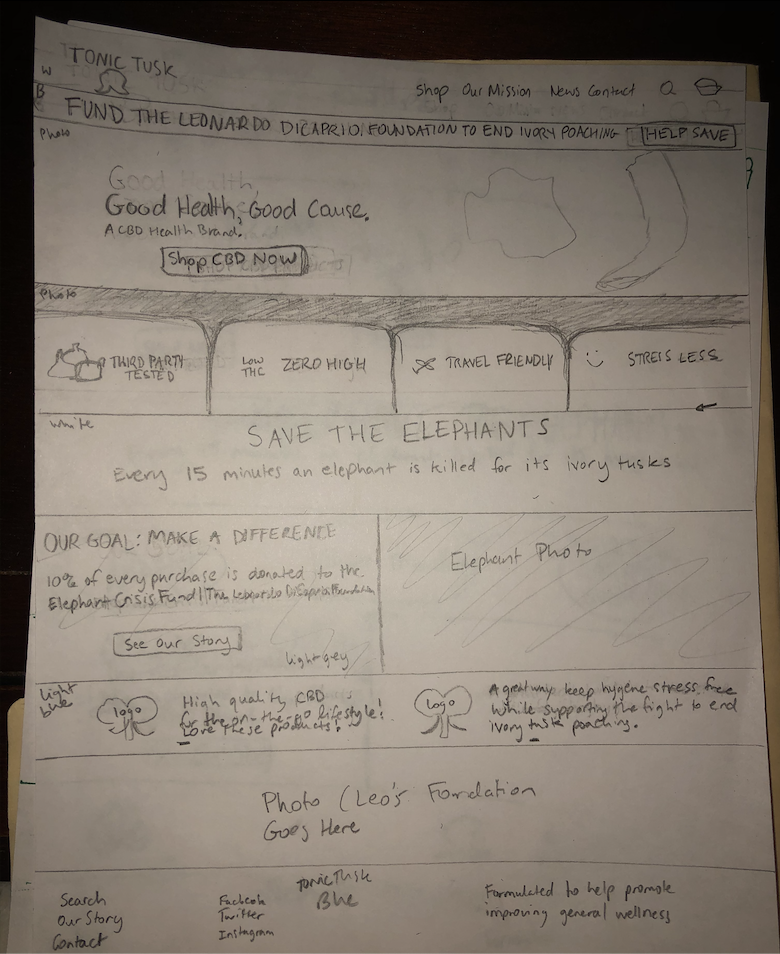 TONIC TUSK
W
Shop Our Mission News Contact
B
FUND THE LEONARDO DICAPRIO FOUNDATION TO END IVORY POACHING HELP SAVE
Photo
Good Health,
Good Health, Good Cause.
A CBD Health Brand.
Shop CBD NOW
Photo
THIRD PARTY
TESTED
LOW
THC
ZERO HIGH
TRAVEL FRIENDLY
STRESS LESS
White
SAVE THE ELEPHANTS
Every 15 minutes an elephant is killed for its ivory tusks
OUR GOAL: MAKE A DIFFERENCE
10% of every purchase is donated to the
Elephant Crisis Fund | The Leonardo DiCaprio Foundation
See Our Story
light grey
Elephant Photo
light
blue
logo
High quality CBD
for the on-the-go lifestyle!
Love these products!
logo
A great way keep hygene stress free
While supporting the fight to end
ivory tusk poaching.
Photo (Leo's Fondation
Goes Here
Search
Our Story
Contact
Facbook
Twitter
Instagram
TONIC TUSK
Blue
Formulated to help promote
improving general wellness